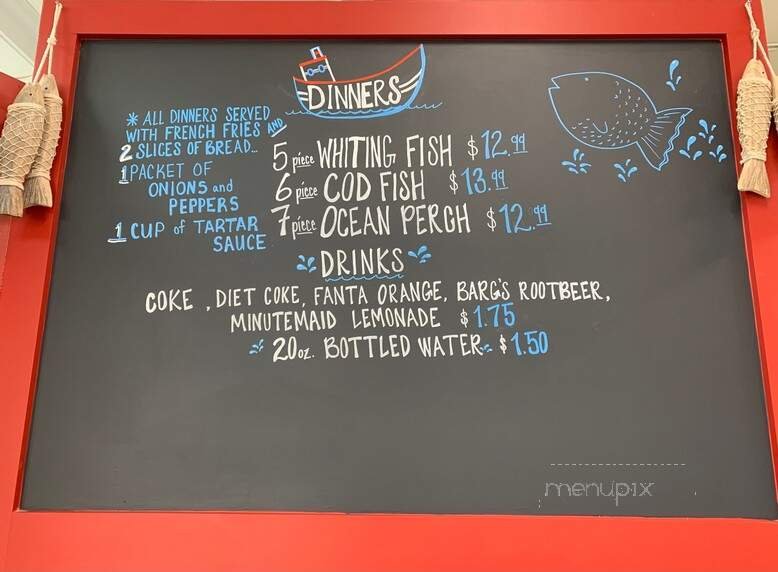 DINNERS
* ALL DINNERS SERVED
WITH FRENCH FRIES AND
2 SLICES OF BREAD...
1 PACKET OF
ONIONS and
PEPPERS
1 CUP of TARTAR
SAUCE
5 piece WHITING FISH $12.99
6 piece COD FISH $13.99
7 piece OCEAN PERCH $12.99
DRINKS
COKE , DIET COKE, FANTA ORANGE, BARG'S ROOTBEER,
MINUTEMAID LEMONADE $1.75
20oz. BOTTLED WATER $1.50
menupix